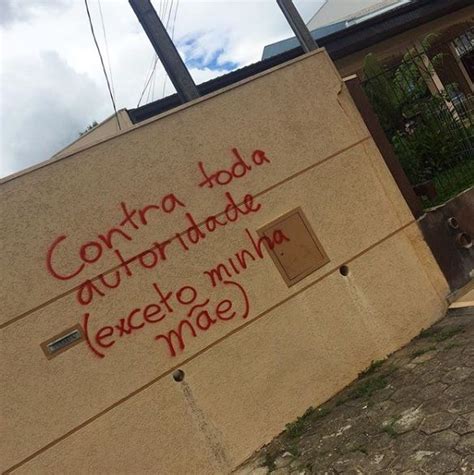 Contra toda
autoridade
(exceto minha
mãe)